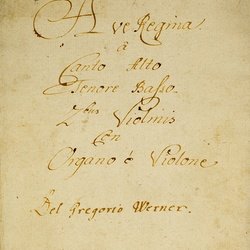 Ave Regina
à
Canto Alto
Tenore Basso
2bus Violinis
Con
Organo è Violone
Del Gregorio Werner.